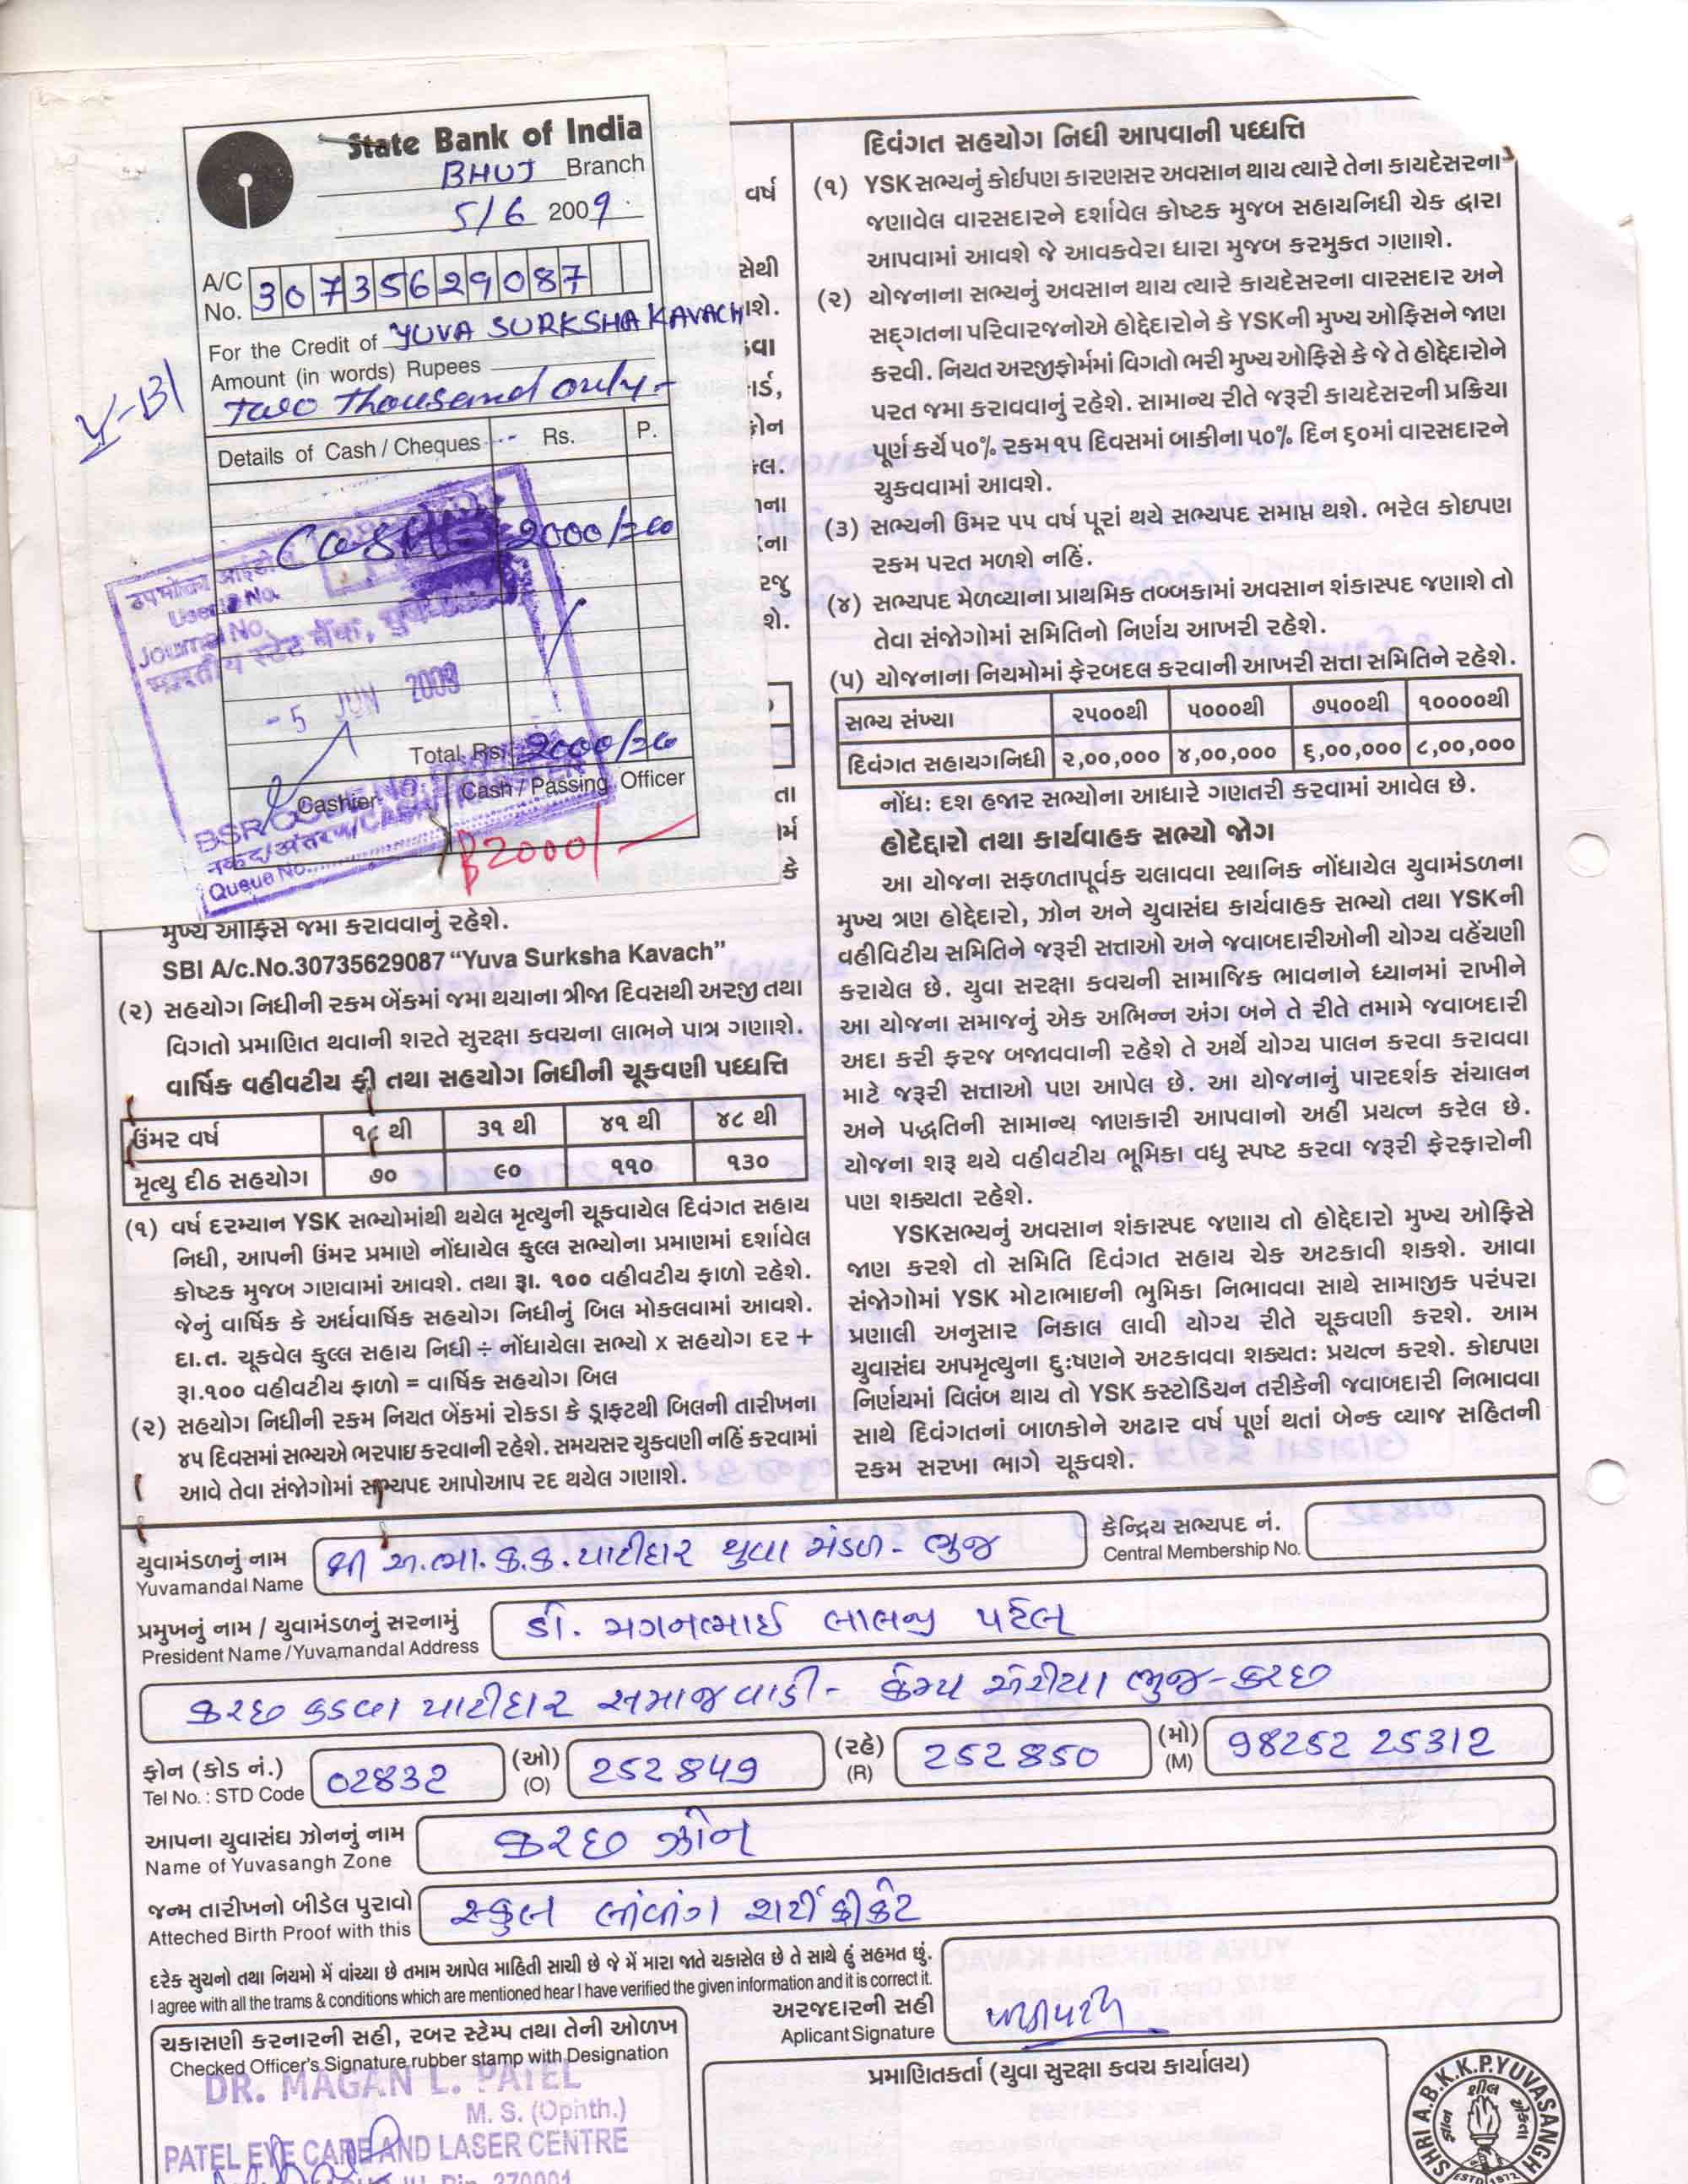 State Bank of India
BHUJ Branch
5/6 2009
A/C No. 30735629087
For the Credit of YUVA SURKSHA KAVACH
Amount (in words) Rupees
Two Thousand only-
Details of Cash / Cheques Rs. P.
V-B1
Cash 2000/=00
उपभोक्ता आईडी
User ID No.
Journal No.
भारतीय स्टेट बैंक, भुज
- 5 JUN 2009
Total Rs. 2000/=00
Cashier Cash / Passing Officer
BSR/CODE NO.
नकद/अंतरण/CASH/TRANSFER
Queue No.
2000/-
વર્ષ
સેથી
શે.
વા
ર્ડ,
ફોન
લ.
ના
ના
રજુ
શે.
તા
ર્મ
કે
મુખ્ય ઓફિસે જમા કરાવવાનું રહેશે.
SBI A/c.No.30735629087 “Yuva Surksha Kavach”
(૨) સહયોગ નિધીની રકમ બેંકમાં જમા થયાના ત્રીજા દિવસથી અરજી તથા
વિગતો પ્રમાણિત થવાની શરતે સુરક્ષા કવચના લાભને પાત્ર ગણાશે.
વાર્ષિક વહીવટીય ફી તથા સહયોગ નિધીની ચૂકવણી પધ્ધતિ
ઉંમર વર્ષ ૧૮ થી ૩૧ થી ૪૧ થી ૪૮ થી
મૃત્યુ દીઠ સહયોગ ૭૦ ૯૦ ૧૧૦ ૧૩૦
(૧) વર્ષ દરમ્યાન YSK સભ્યોમાંથી થયેલ મૃત્યુની ચૂકવાયેલ દિવંગત સહાય
નિધી, આપની ઉંમર પ્રમાણે નોંધાયેલ કુલ્લ સભ્યોના પ્રમાણમાં દર્શાવેલ
કોષ્ટક મુજબ ગણવામાં આવશે. તથા રૂા. ૧૦૦ વહીવટીય ફાળો રહેશે.
જેનું વાર્ષિક કે અર્ધવાર્ષિક સહયોગ નિધીનું બિલ મોકલવામાં આવશે.
દા.ત. ચૂકવેલ કુલ્લ સહાય નિધી ÷ નોંધાયેલા સભ્યો x સહયોગ દર +
રૂા.૧૦૦ વહીવટીય ફાળો = વાર્ષિક સહયોગ બિલ
(૨) સહયોગ નિધીની રકમ નિયત બેંકમાં રોકડા કે ડ્રાફ્ટથી બિલની તારીખના
૪૫ દિવસમાં સભ્યએ ભરપાઇ કરવાની રહેશે. સમયસર ચુકવણી નહિં કરવામાં
આવે તેવા સંજોગોમાં સભ્યપદ આપોઆપ રદ થયેલ ગણાશે.
દિવંગત સહયોગ નિધી આપવાની પધ્ધત્તિ
(૧) YSK સભ્યનું કોઈપણ કારણસર અવસાન થાય ત્યારે તેના કાયદેસરના
જણાવેલ વારસદારને દર્શાવેલ કોષ્ટક મુજબ સહાયનિધી ચેક દ્વારા
આપવામાં આવશે જે આવકવેરા ધારા મુજબ કરમુક્ત ગણાશે.
(૨) યોજનાના સભ્યનું અવસાન થાય ત્યારે કાયદેસરના વારસદાર અને
સદ્ગતના પરિવારજનોએ હોદ્દેદારોને કે YSKની મુખ્ય ઓફિસને જાણ
કરવી. નિયત અરજીફોર્મમાં વિગતો ભરી મુખ્ય ઓફિસે કે જે તે હોદ્દેદારોને
પરત જમા કરાવવાનું રહેશે. સામાન્ય રીતે જરૂરી કાયદેસરની પ્રક્રિયા
પૂર્ણ કર્યે ૫૦% રકમ ૧૫ દિવસમાં બાકીના ૫૦% દિન ૬૦માં વારસદારને
ચુકવવામાં આવશે.
(૩) સભ્યની ઉંમર ૫૫ વર્ષ પૂરાં થયે સભ્યપદ સમાપ્ત થશે. ભરેલ કોઇપણ
રકમ પરત મળશે નહિં.
(૪) સભ્યપદ મેળવ્યાના પ્રાથમિક તબ્બકામાં અવસાન શંકાસ્પદ જણાશે તો
તેવા સંજોગોમાં સમિતિનો નિર્ણય આખરી રહેશે.
(૫) યોજનાના નિયમોમાં ફેરબદલ કરવાની આખરી સત્તા સમિતિને રહેશે.
સભ્ય સંખ્યા ૨૫૦૦થી ૫૦૦૦થી ૭૫૦૦થી ૧૦૦૦૦થી
દિવંગત સહાયગનિધી ૨,૦૦,૦૦૦ ૪,૦૦,૦૦૦ ૬,૦૦,૦૦૦ ૮,૦૦,૦૦૦
નોંધ: દશ હજાર સભ્યોના આધારે ગણતરી કરવામાં આવેલ છે.
હોદેદ્દારો તથા કાર્યવાહક સભ્યો જોગ
આ યોજના સફળતાપૂર્વક ચલાવવા સ્થાનિક નોંધાયેલ યુવામંડળના
મુખ્ય ત્રણ હોદ્દેદારો, ઝોન અને યુવાસંઘ કાર્યવાહક સભ્યો તથા YSKની
વહીવિટીય સમિતિને જરૂરી સત્તાઓ અને જવાબદારીઓની યોગ્ય વહેંચણી
કરાયેલ છે. યુવા સરક્ષા કવચની સામાજિક ભાવનાને ધ્યાનમાં રાખીને
આ યોજના સમાજનું એક અભિન્ન અંગ બને તે રીતે તમામે જવાબદારી
અદા કરી ફરજ બજાવવાની રહેશે તે અર્થે યોગ્ય પાલન કરવા કરાવવા
માટે જરૂરી સત્તાઓ પણ આપેલ છે. આ યોજનાનું પારદર્શક સંચાલન
અને પદ્ધતિની સામાન્ય જાણકારી આપવાનો અહી પ્રયત્ન કરેલ છે.
યોજના શરૂ થયે વહીવટીય ભૂમિકા વધુ સ્પષ્ટ કરવા જરૂરી ફેરફારોની
પણ શક્યતા રહેશે.
YSKસભ્યનું અવસાન શંકાસ્પદ જણાય તો હોદ્દેદારો મુખ્ય ઓફિસે
જાણ કરશે તો સમિતિ દિવંગત સહાય ચેક અટકાવી શકશે. આવા
સંજોગોમાં YSK મોટાભાઇની ભુમિકા નિભાવવા સાથે સામાજીક પરંપરા
પ્રણાલી અનુસાર નિકાલ લાવી યોગ્ય રીતે ચૂકવણી કરશે. આમ
યુવાસંઘ અપમૃત્યુના દુઃષણને અટકાવવા શક્યતઃ પ્રયત્ન કરશે. કોઇપણ
નિર્ણયમાં વિલંબ થાય તો YSK કસ્ટોડિયન તરીકેની જવાબદારી નિભાવવા
સાથે દિવંગતનાં બાળકોને અઢાર વર્ષ પૂર્ણ થતાં બેન્ક વ્યાજ સહિતની
રકમ સરખા ભાગે ચૂકવશે.
યુવામંડળનું નામ શ્રી અ.ભા.ક.ક.પાટીદાર યુવા મંડળ - ભુજ કેન્દ્રિય સભ્યપદ નં.
Yuvamandal Name Central Membership No.
પ્રમુખનું નામ / યુવામંડળનું સરનામું ડૉ. મગનભાઈ લાલજી પટેલ
President Name /Yuvamandal Address
કચ્છ કડવા પાટીદાર સમાજવાડી - કેમ્પ એરીયા ભુજ-કચ્છ
ફોન (કોડ નં.) 02832 (ઓ) 252849 (રહે) 252850 (મો) 98252 25312
Tel No. : STD Code (O) (R) (M)
આપના યુવાસંઘ ઝોનનું નામ કચ્છ ઝોન
Name of Yuvasangh Zone
જન્મ તારીખનો બીડેલ પુરાવો સ્કુલ લીવીંગ સર્ટીફીકેટ
Atteched Birth Proof with this
દરેક સુચનો તથા નિયમો મેં વાંચ્યા છે તમામ આપેલ માહિતી સાચી છે જે મેં મારા જાતે ચકાસેલ છે તે સાથે હું સહમત છું.
I agree with all the trams & conditions which are mentioned hear I have verified the given information and it is correct it.
અરજદારની સહી
Aplicant Signature
ચકાસણી કરનારની સહી, રબર સ્ટેમ્પ તથા તેની ઓળખ
Checked Officer's Signature rubber stamp with Designation
DR. MAGAN L. PATEL
M. S. (Ophth.)
PATEL EYE CARE AND LASER CENTRE
Pin. 370001
પ્રમાણિતકર્તા (યુવા સુરક્ષા કવચ કાર્યાલય)
SHRI A.B.K.K.P.YUVASANGH
શીલ
જ્ઞાન
એકતા
ESTD.1972